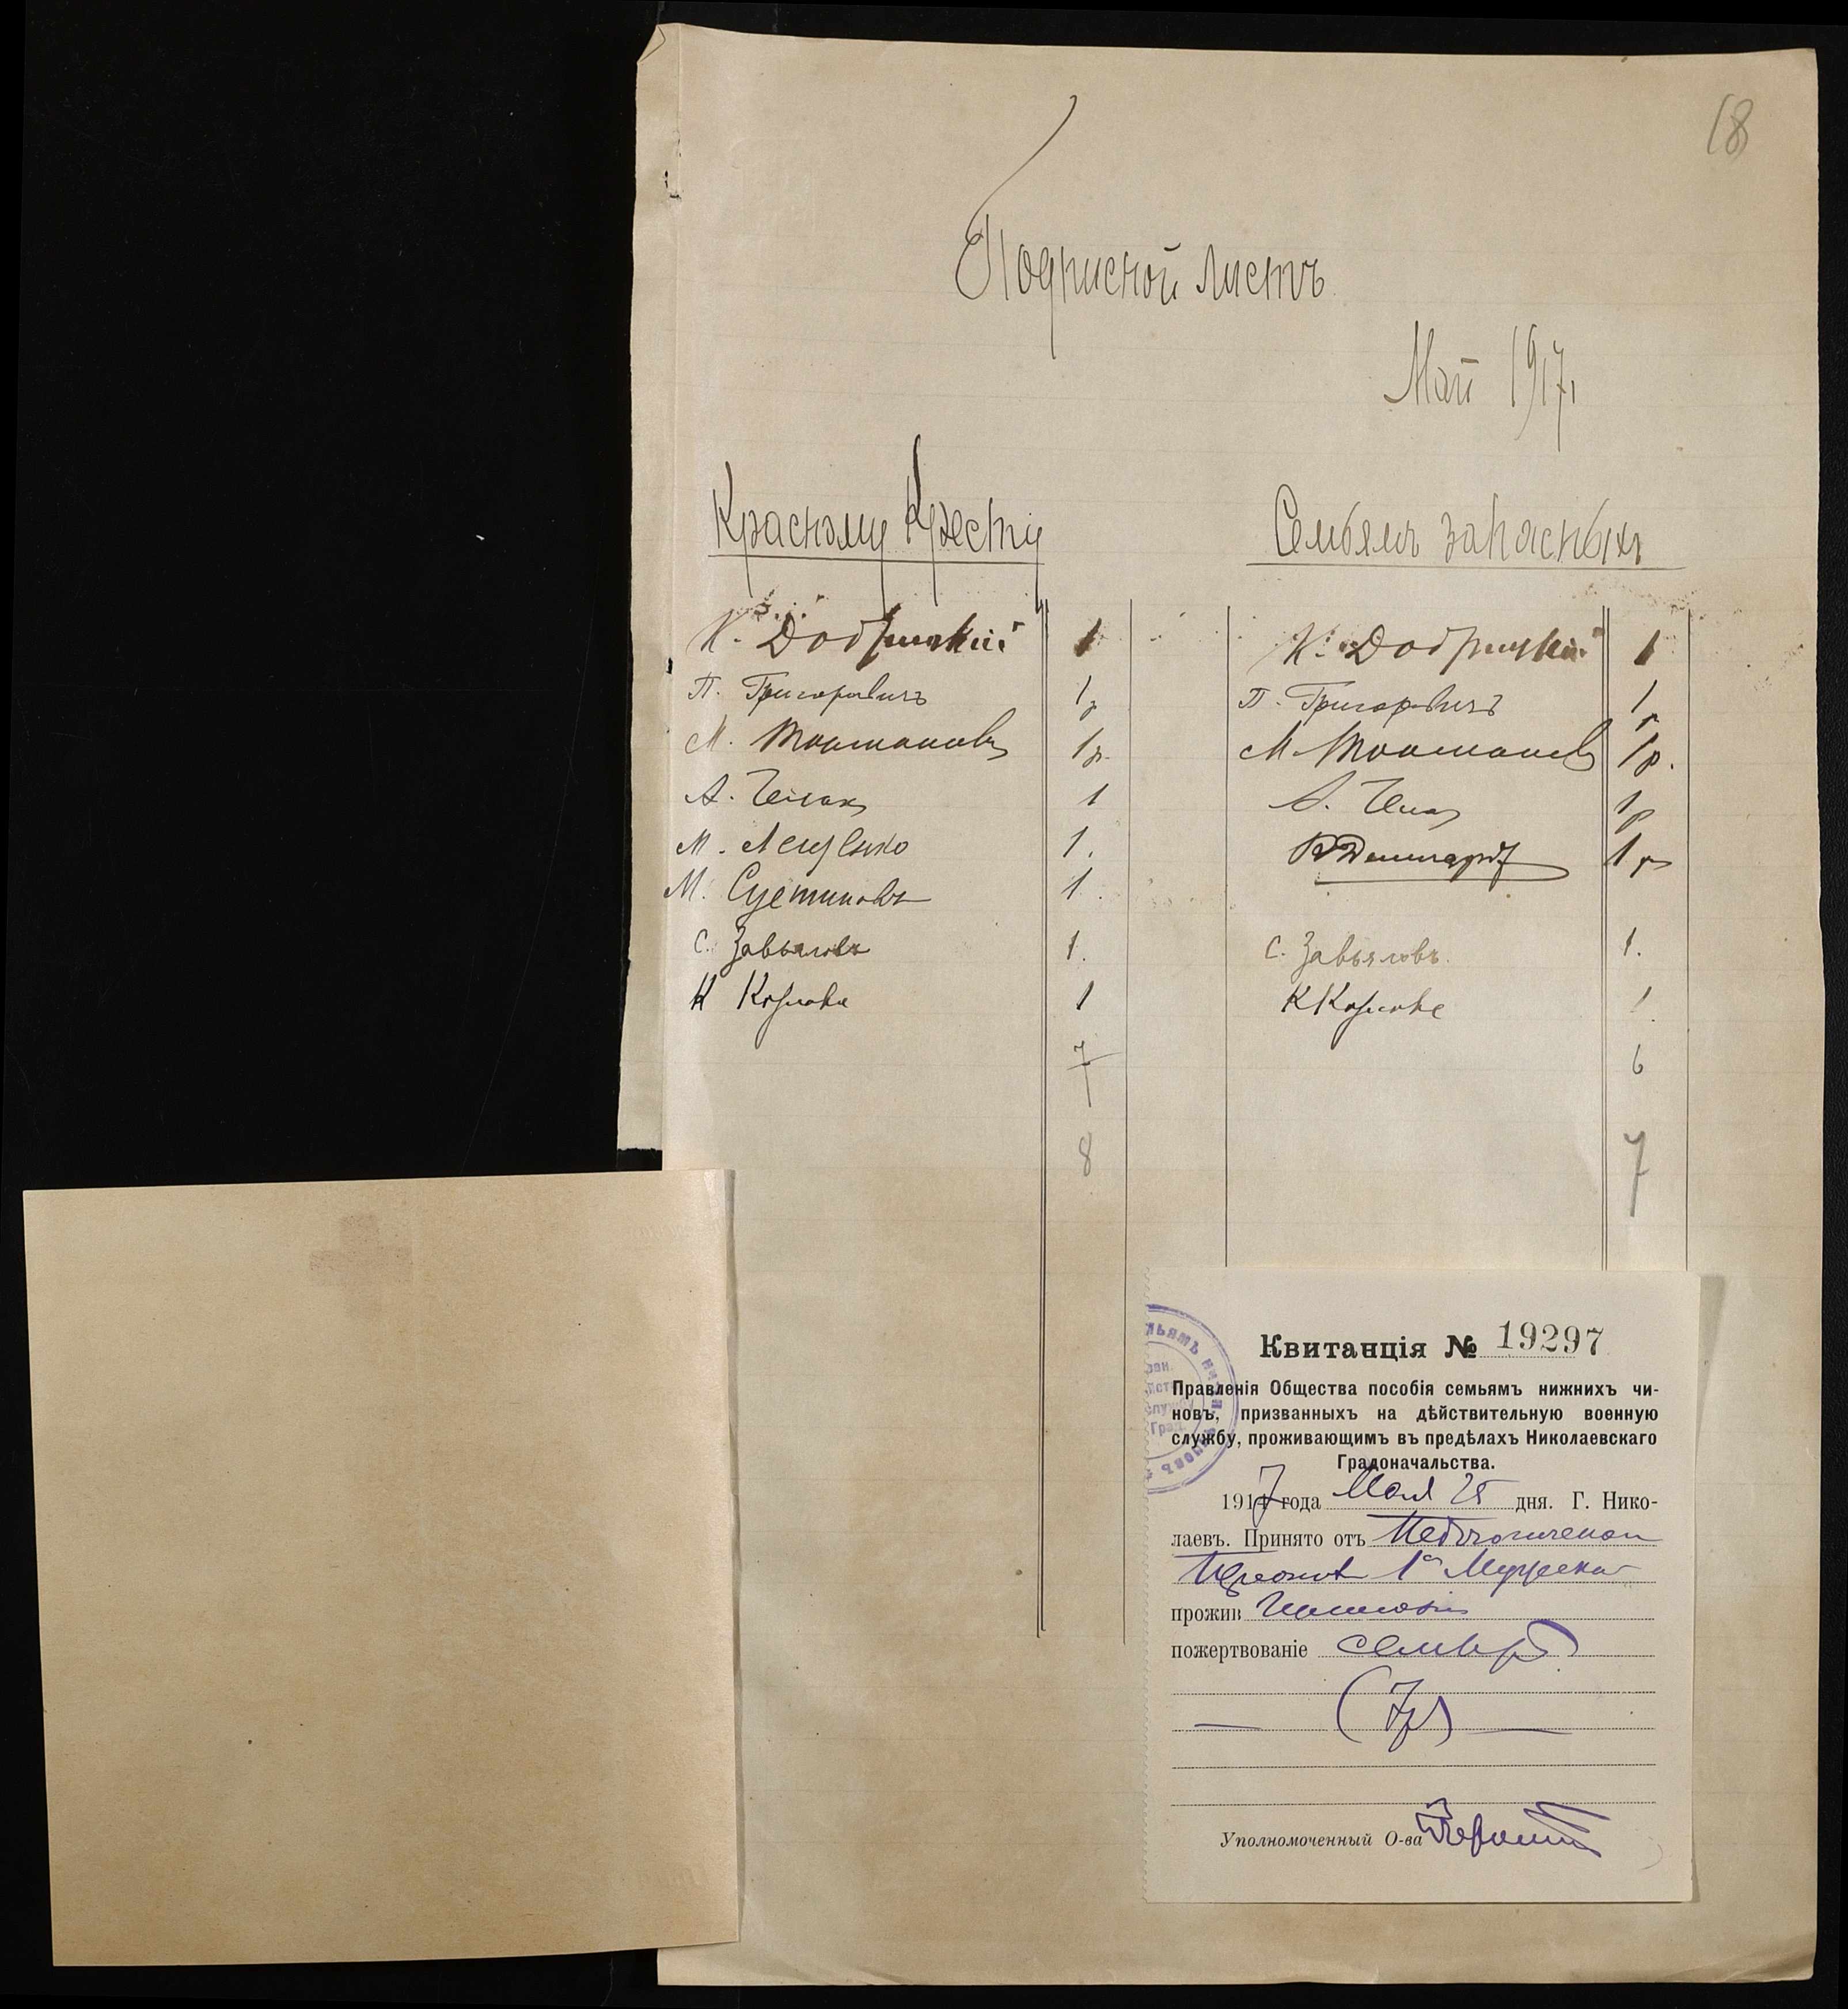 18
Подписной листъ
Май 1917
Красному Кресту
К. Добрицкій 1
П. Григоровичъ 1р
М. 1р.
А. 1
М. Лещенко 1.
М. Суетиновъ 1.
С. Завьяловъ 1.
К 1
7
8
Семьямъ запасныхъ
К. Добрицкій 1
П. Григоровичъ 1р
М. 1р.
А. 1р
1р
С. Завьяловъ. 1.
К 1.
6
7
Квитанція № 19297
Правленія Общества пособія семьямъ нижнихъ чи-
новъ, призванныхъ на дѣйствительную военную
службу, проживающимъ въ предѣлахъ Николаевскаго
Градоначальства.
1917 года Мая 25 дня. Г. Нико-
лаевъ. Принято отъ
1й Мужской
прожив
пожертвованіе семь р
(7р)
Уполномоченный О-ва